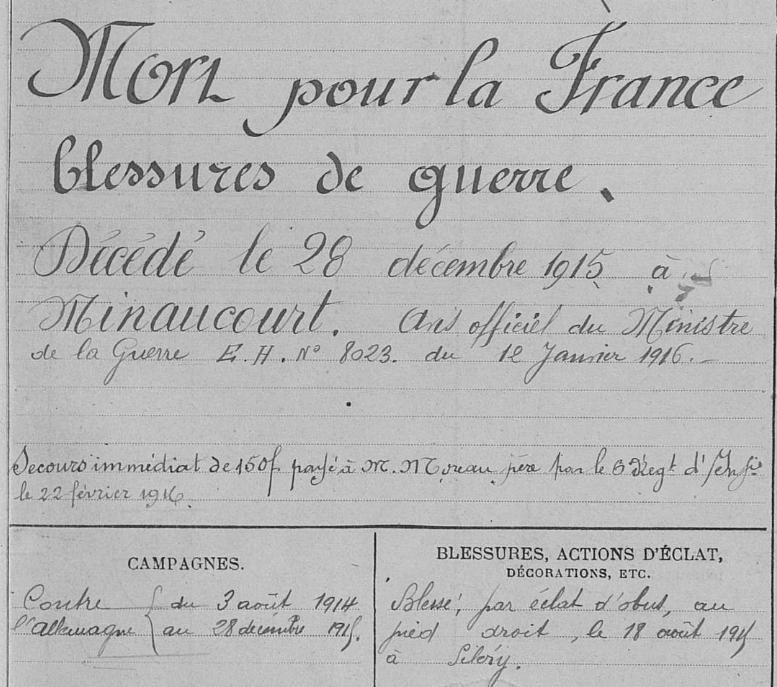 Mort pour la France
blessures de guerre.
Décédé le 28 décembre 1915 à
Minaucourt. Avis officiel du Ministre
de la Guerre E.H. N° 8023. du 12 Janvier 1916.-
Secours immédiat de 150f. payé à M. Moreau père par le Regt d'Inf^ie
le 22 février 1916.
CAMPAGNES.
Contre { du 3 août 1914
l'Allemagne { au 28 décembre 1915.
BLESSURES, ACTIONS D'ÉCLAT,
DÉCORATIONS, ETC.
Blessé, par éclat d'obus, au
pied droit, le 18 août 1915
à Sillery.